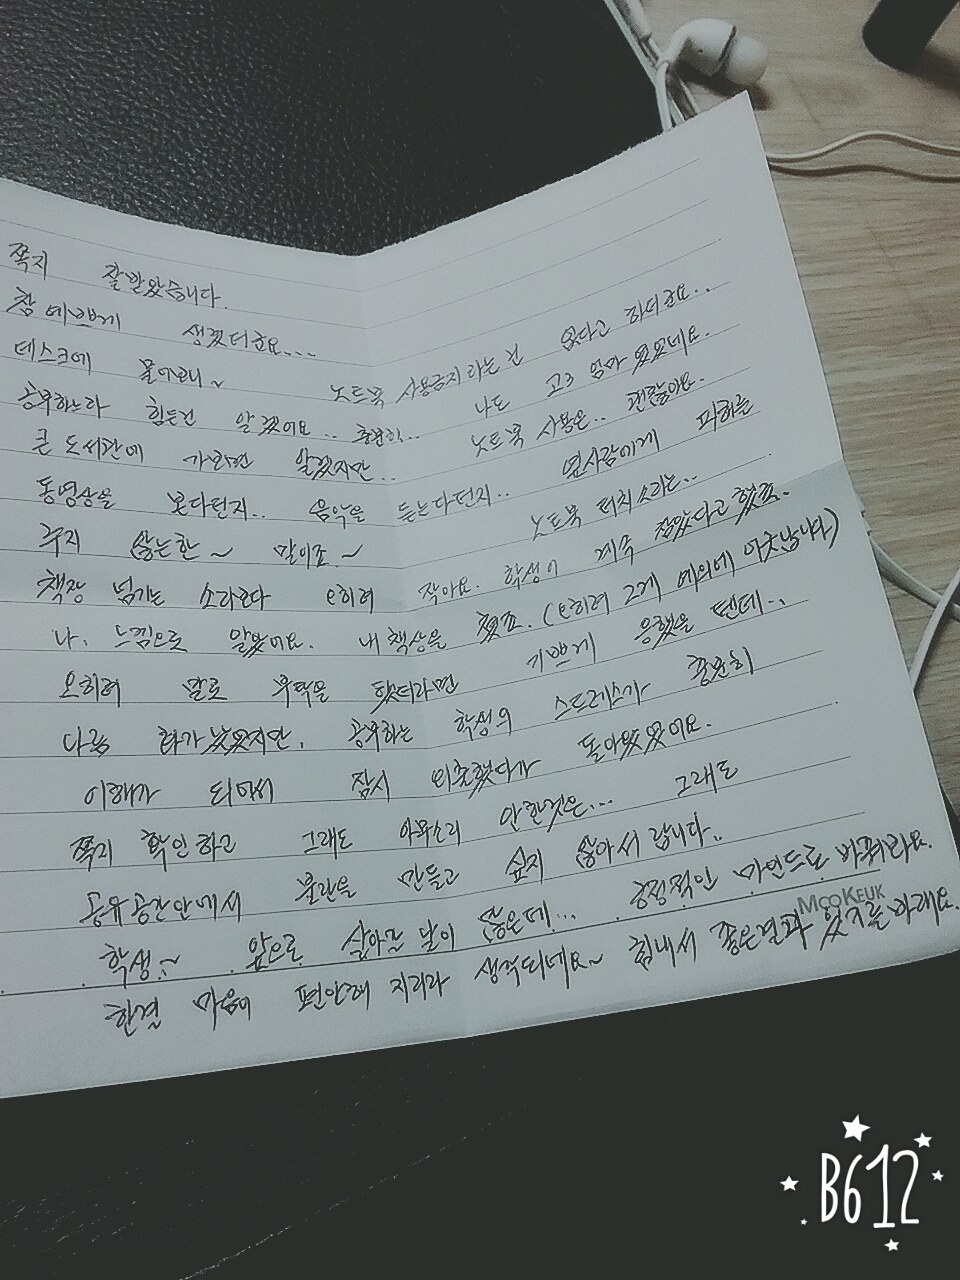 쪽지 잘받았습니다.
참 예쁘게 생겼더군요....
데스크에 물어보니~ 노트북 사용금지라는건 없다고 하더군요..
공부하느라 힘든건 알겠어요.. 충분히.. 나도 고3 엄마였었네요.
큰 도서관에 가라면 알겠지만.. 노트북 사용은.. 괜찮아요.
동영상을 본다던지.. 음악을 듣는다던지.. 옆사람에게 피해를
주지 않는한~ 말이죠~ 노트북 터치소리는..
책장 넘기는 소리보다 오히려 작아요. 학생이 계속 참았다고 했죠.
나, 느낌으로 알았어요. 내 책상을 쳤죠. (오히려 그게 예의에 어긋납니다)
오히려 말로 부탁을 했더라면 기쁘게 응했을 텐데..
나름 화가났었지만, 공부하는 학생의 스트레스가 충분히
이해가 되어서 잠시 외출했다가 돌아왔었어요.
쪽지 확인하고 그래도 아무소리 안한것은... 그래도
공유공간안에서 분란을 만들고 싶지 않아서 랍니다..
학생~ 앞으로 살아갈 날이 많은데... 긍정적인 마인드로 바꿔봐요.
한결 마음이 편안해 지리라 생각되네요~ 힘내서 좋은결과 있기를 바래요.
MooKEUK
B612